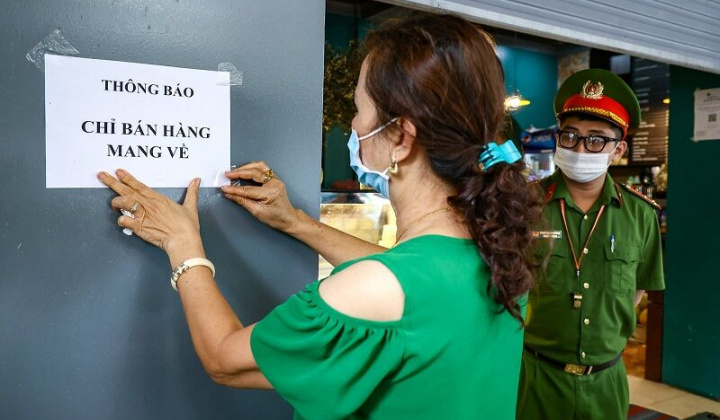 THÔNG BÁO
CHỈ BÁN HÀNG
MANG VỀ